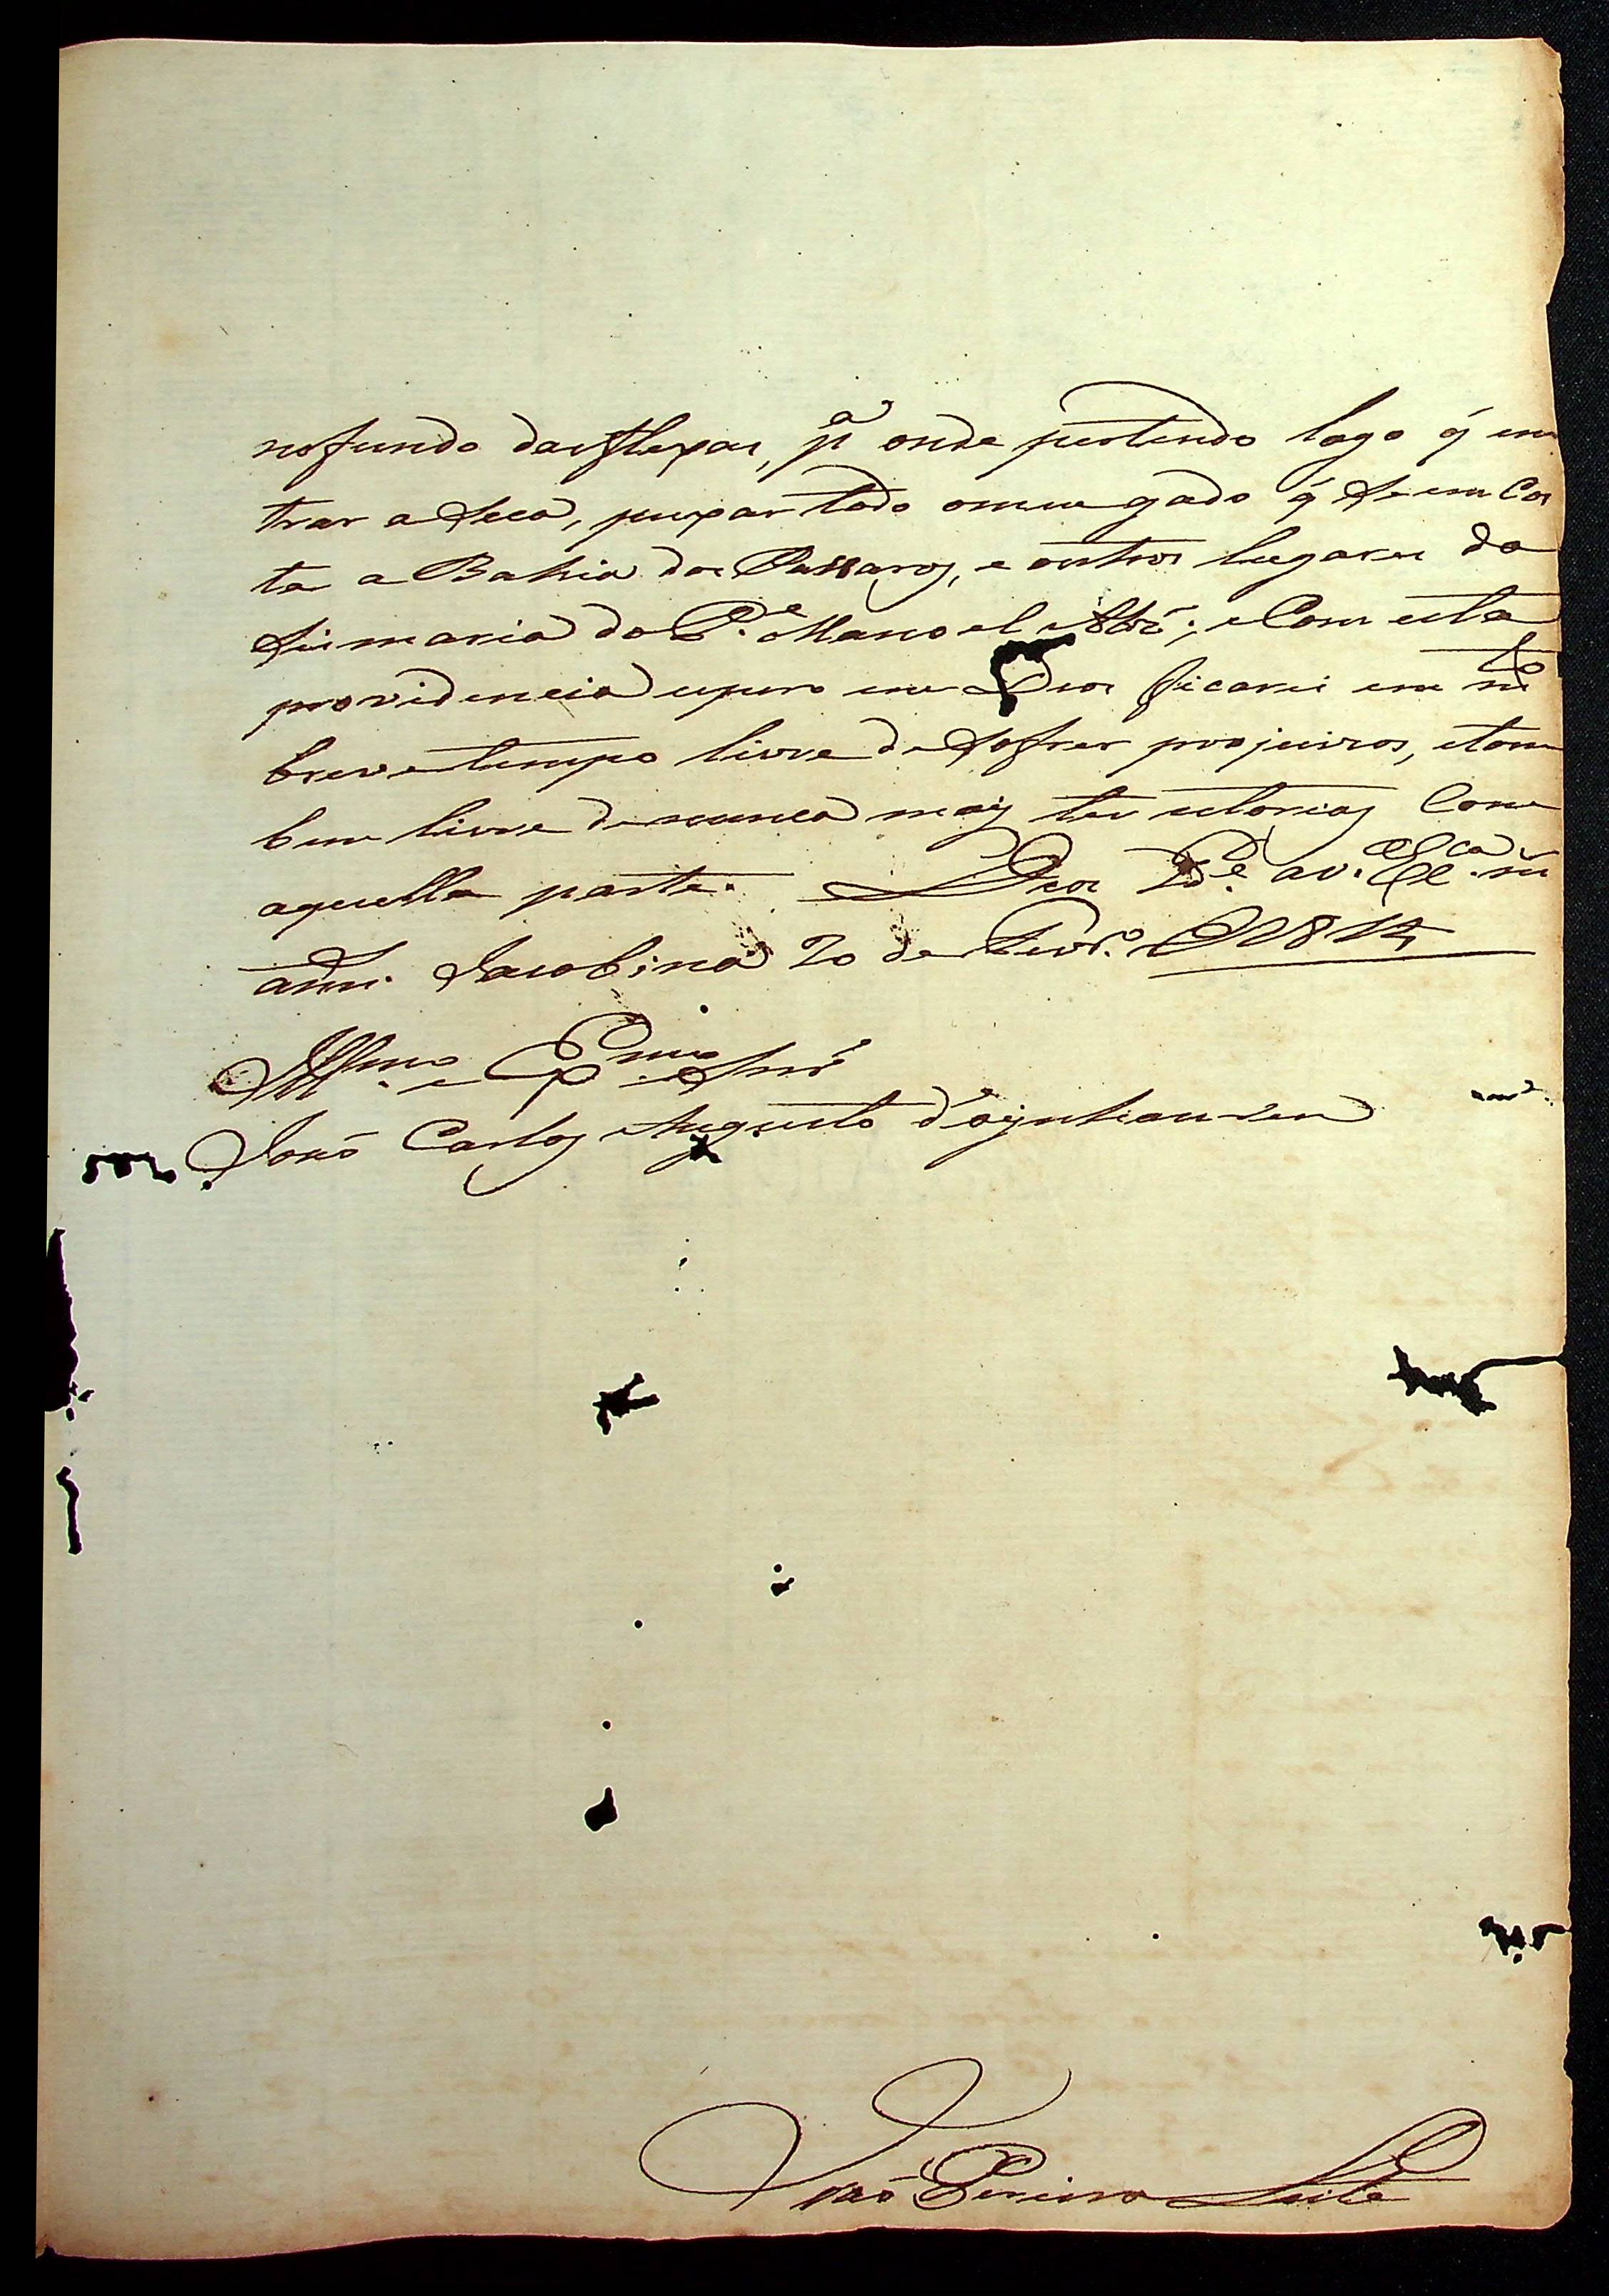 no fundo das Flexas, pª onde pertendo logo q̃ en
trar a Seca, puxar todo omeu gado q̃ Se em Cos
ta a Bahia dos Passaros, e outros lugares da
Sismaria do P.e Manoel Alz̃; e Com esta
providencia espero em Deos ficarei em m.to
breve tempo livre de Sofrer projuizos, e tam
bem livre de nunca mais ter estorias Com
aquella parte. Deos G.de a V. Ex.ca m.s
ann.s Jacobina 20 de Fevr.o 1814
Ill.mo e Ex.mo Snr̃
João Carlos Augusto d'oynhausen
João Pereira Leite